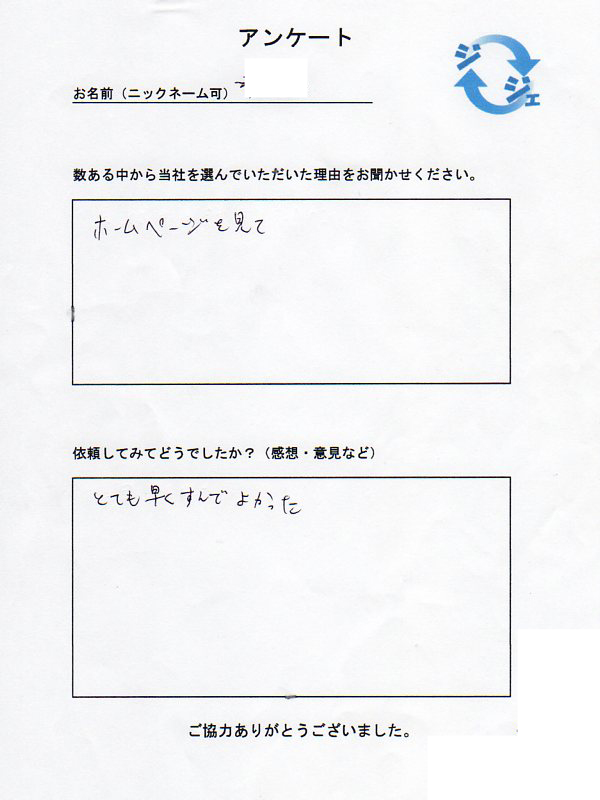 アンケート
ジジェ
お名前（ニックネーム可）
数ある中から当社を選んでいただいた理由をお聞かせください。
ホームページを見て
依頼してみてどうでしたか？（感想・意見など）
とても早くすんでよかった
ご協力ありがとうございました。